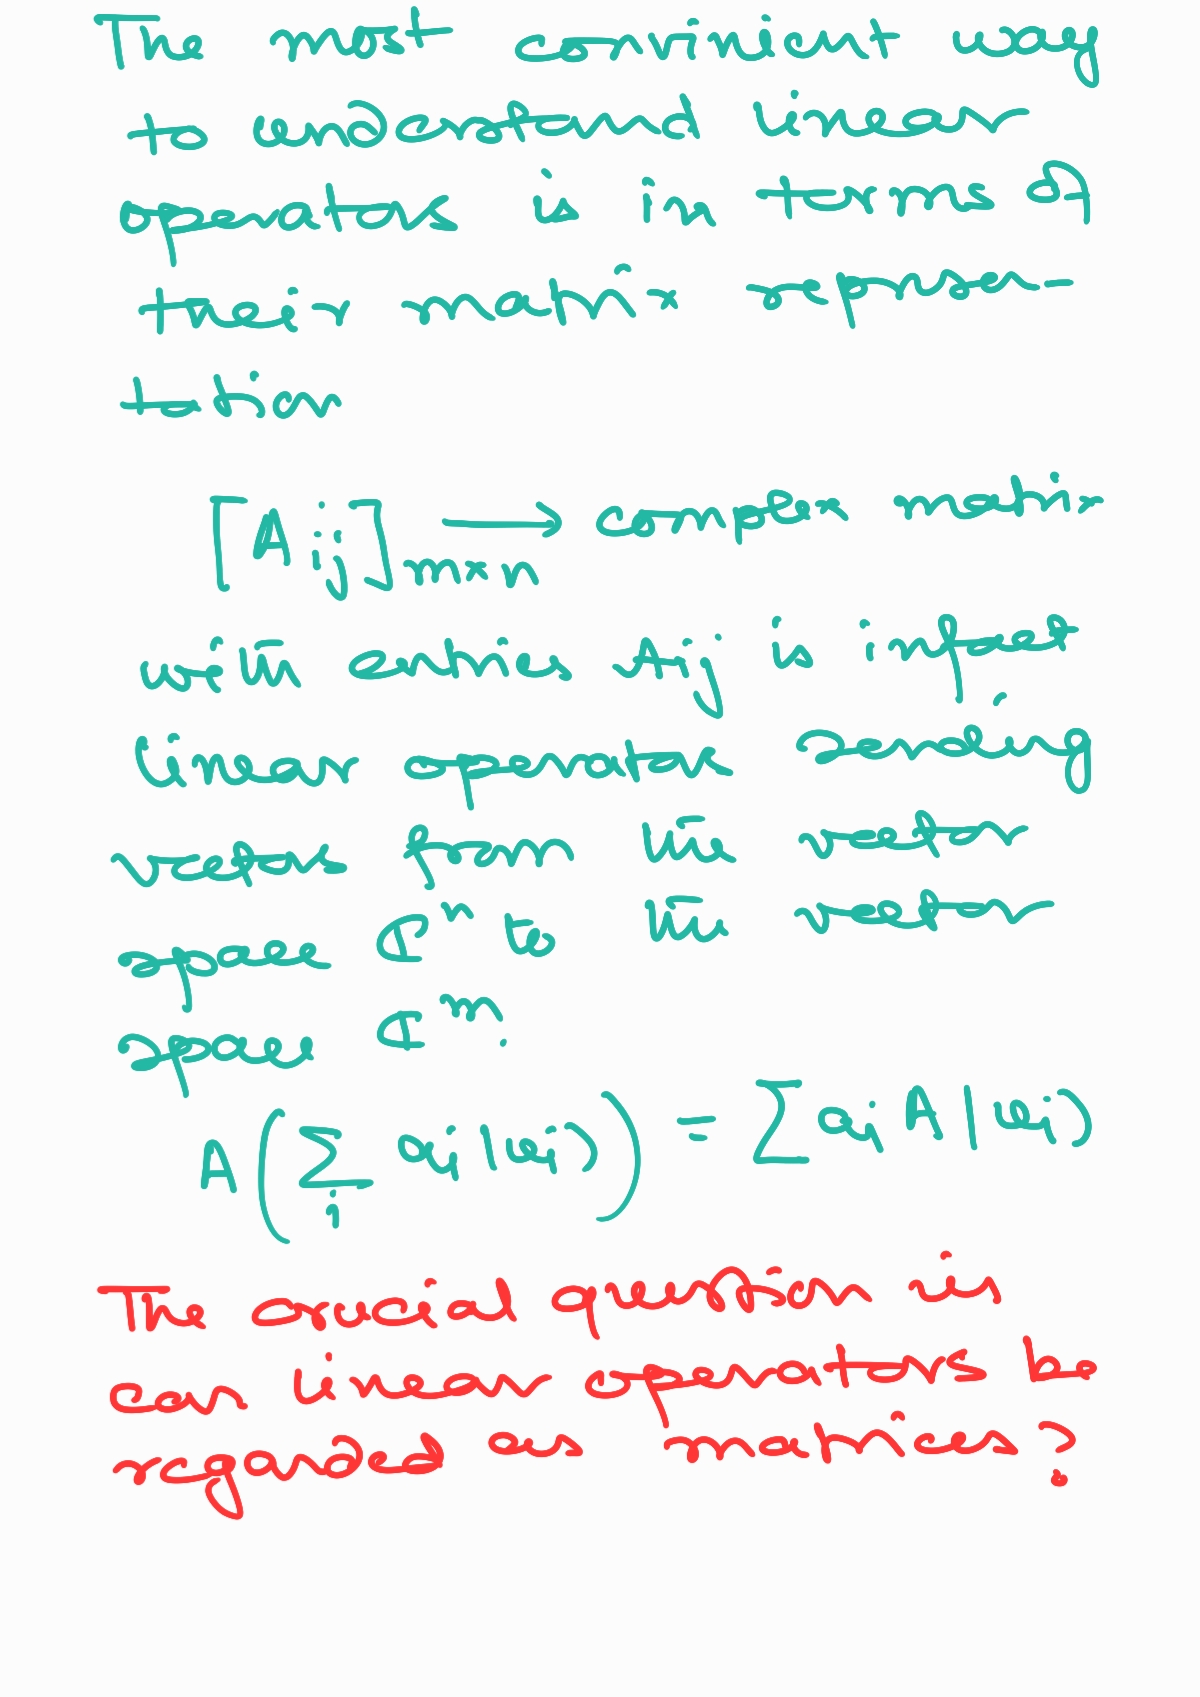 The most convinient way
to understand linear
operators is in terms of
their matrix represen-
tation
[A ij] m×n → complex matrix
with entries Aij is infact
linear operator sending
vectors from the vector
space ℂⁿ to the vector
space ℂᵐ.
A(∑ᵢ aᵢ|vᵢ⟩) = ∑ aᵢ A|vᵢ⟩
The crucial question is
can linear operators be
regarded as matrices?